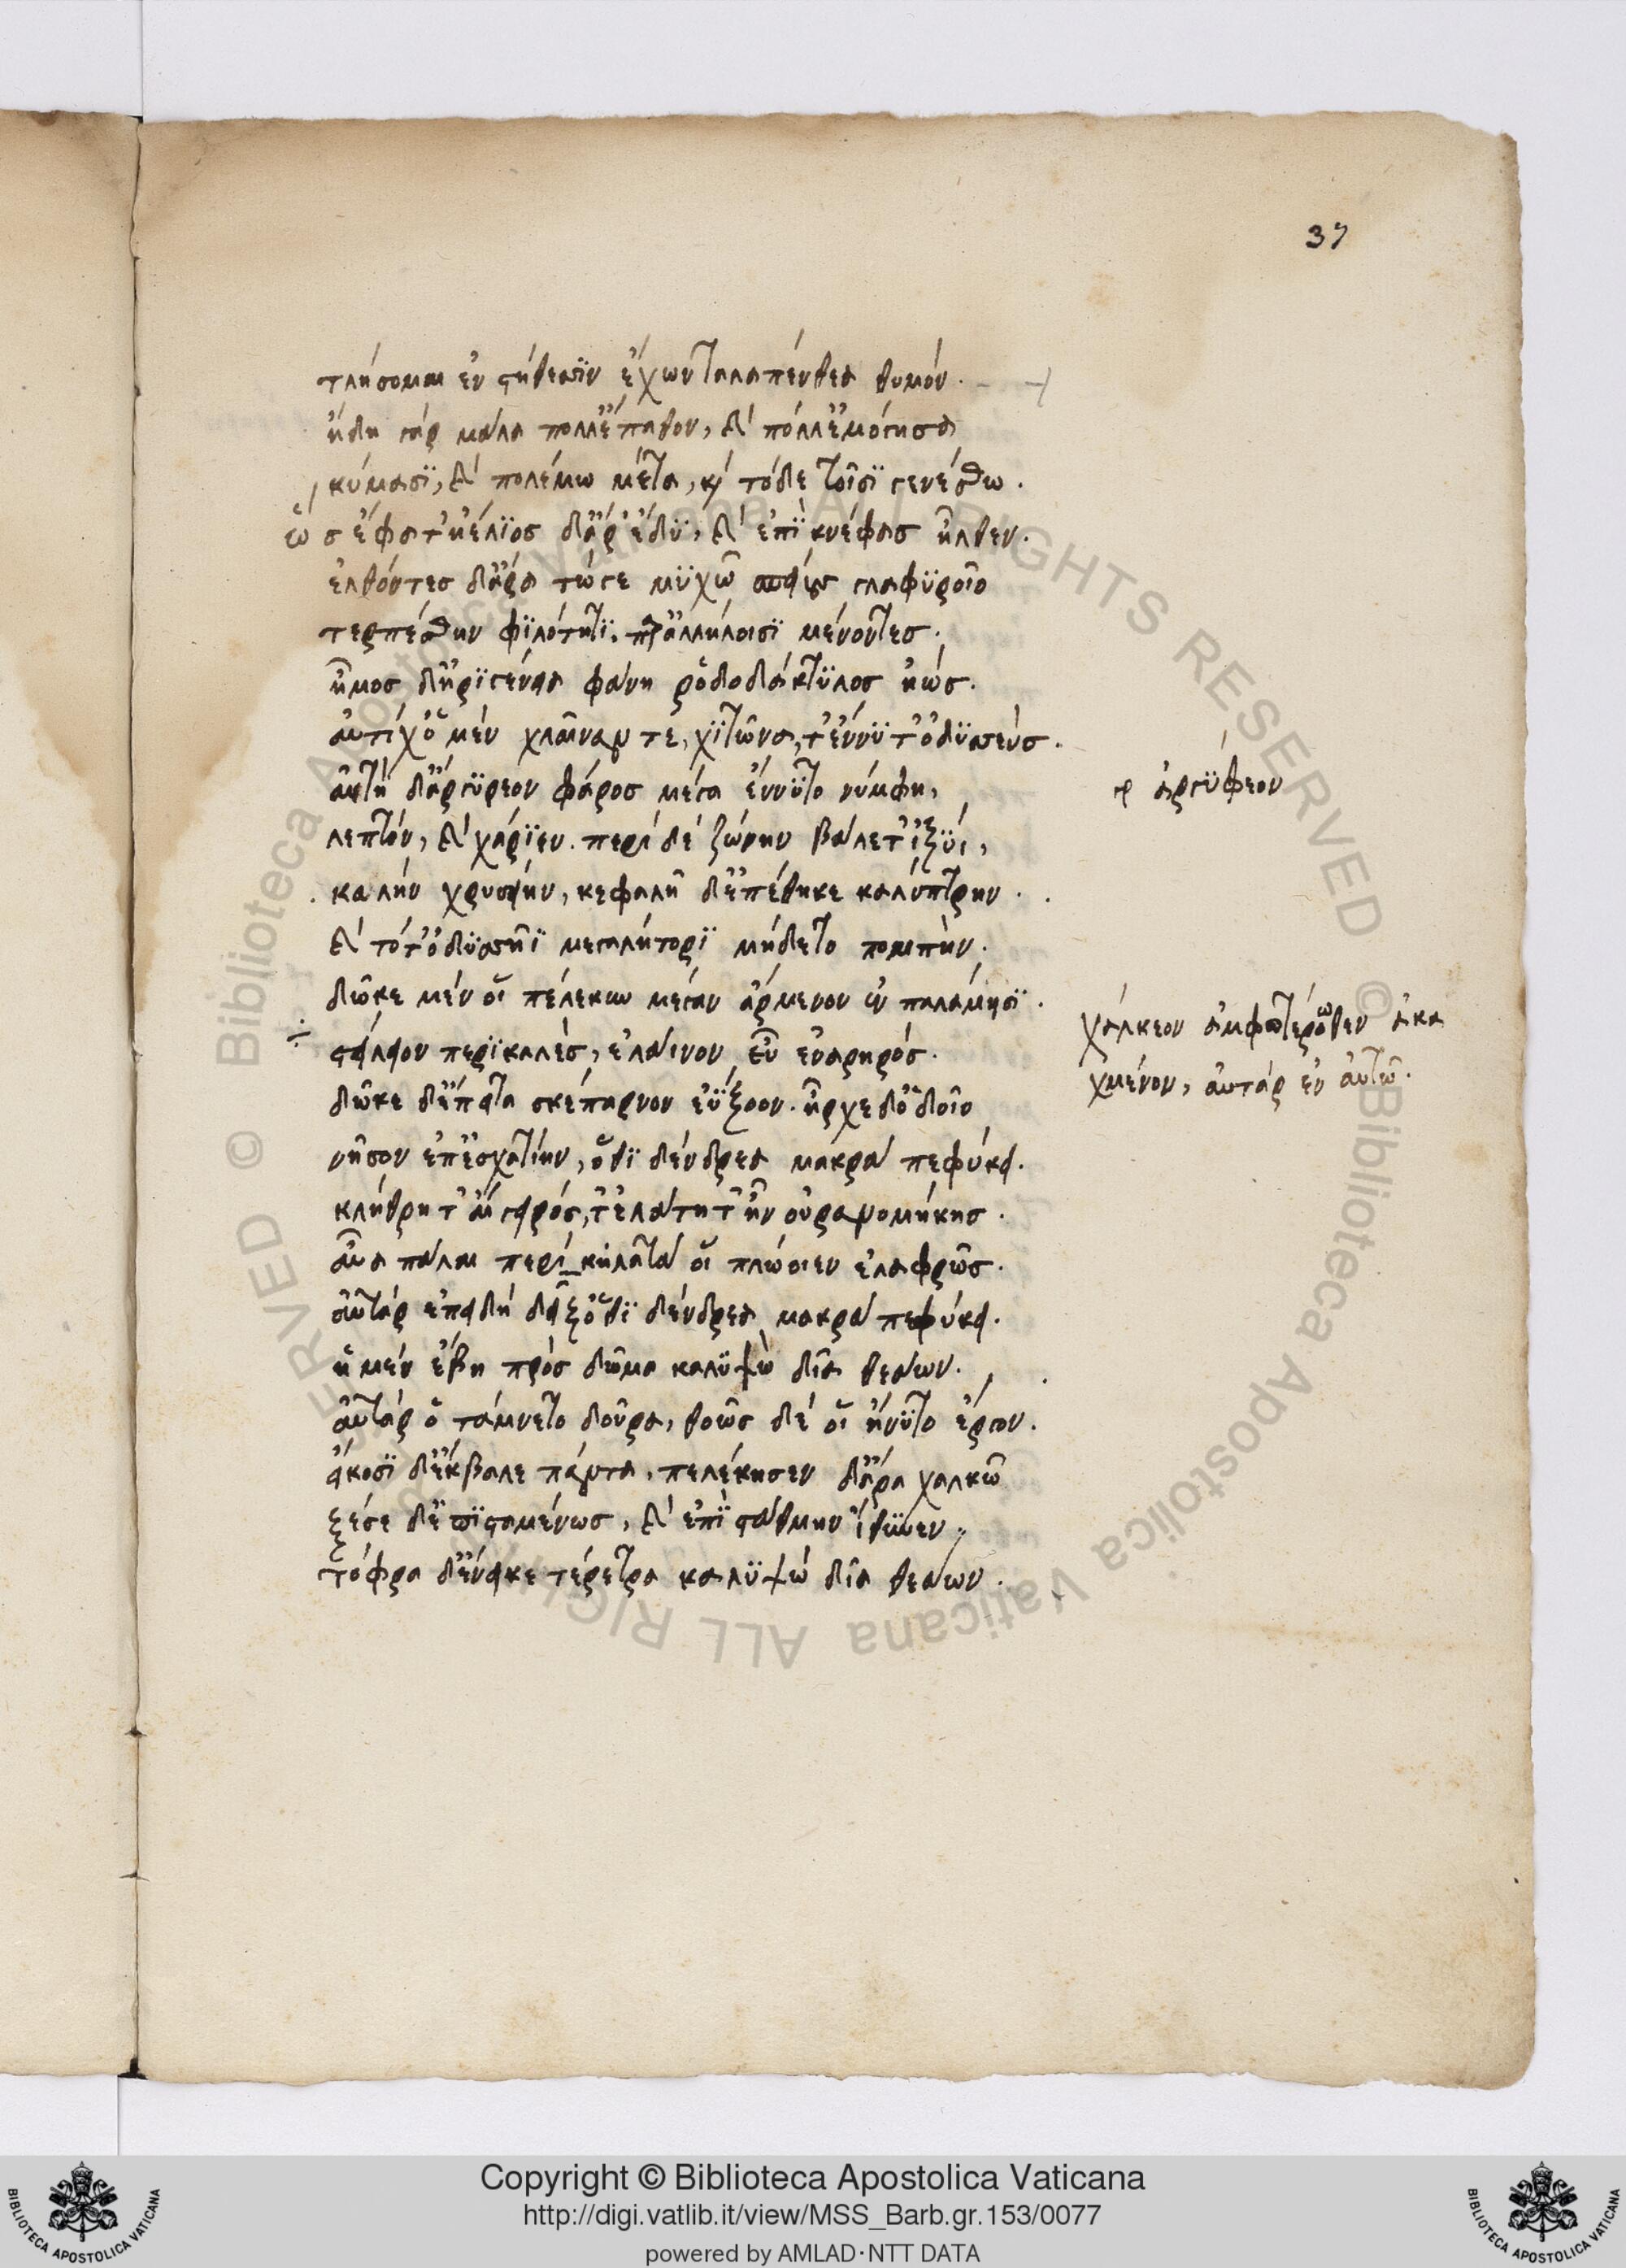 37
τλήσομαι ἐν στήθεσϊν ἔχων ταλαπενθέα θυμόν.
ἤδη γὰρ μάλα πολλ' ἔπαθον, καὶ πόλλ' ἐμόγησα
κύμασϊ, καὶ πολέμω μέτα, καὶ τόδε τοῖσϊ γενέσθω.
ὣς ἔφατ' ἠέλϊος δ' ἄρ' ἔδϋ, καὶ ἐπϊ κνέφας ἦλθεν.
ἐλθόντες δ' ἄρα τώγε μϋχῶ σπείους γλαφϋροῖο
τερπέσθην φϊλότητϊ, παρ' ἀλλήλοισϊ μένοντες.
ἦμος δ' ἠρϊγένεια φάνη ῥοδοδάκτϋλος ἠώς.
αὐτίχ' ὁ μὲν χλαῖναν τὲ, χϊτῶνα, τ' ἔννϋτ' ὀδϋσεύς.
αὐτὴ δ' ἀργϋρεον φάρος μέγα ἔννϋτο νύμφη,
γρ ἀργϋφεον
λεπτόν, καὶ χάρϊεν. περὶ δὲ ζώνην βάλετ' ἰξϋί,
καλὴν χρυσείην, κεφαλῆ δ' ἐπέθηκε καλύπτρην.
καὶ τότ' ὀδϋσσῆϊ μεγαλήτορϊ μήδετο πομπὴν.
δῶκε μέν οἱ πέλεκυν μέγαν ἄρμενον ἐν παλάμησϊ.
χάλκεον ἀμφοτέρωθεν ἀκα
χμένον, αὐτὰρ ἐν αὐτῶ.
στειλειὸν περϊκαλλὲς, ἐλάινον εὖ ἐναρηρός.
δῶκε δ' ἔπειτα σκέπαρνον ἐΰξοον. ἦρχε δ' ὁδοῖο
νῆσον ἐπ' ἐσχατίην, ὅθϊ δένδρεα μακρὰ πεφύκει.
κλήθρη τ' αἴγειρός, τ' ἐλάτη τ' ἦν οὐρανομήκης.
αὖα πάλαι περίκηλα τά οἱ πλώοιεν ἐλαφρῶς.
αὐτὰρ ἐπειδὴ δεῖξ' ὅθϊ δένδρεα μακρὰ πεφύκει.
ἡ μὲν ἔβη πρὸς δῶμα καλϋψὼ δῖα θεάων.
αὐτὰρ ὁ τάμνετο δοῦρα, θοῶς δέ οἱ ἤνϋτο ἔργον.
εἴκοσϊ δ' ἔκβαλε πάντα, πελέκησεν δ' ἄρα χαλκῶ
ξέσε δ' ἐπϊσταμένως, καὶ ἐπϊ στάθμην ἴθϋνεν.
τόφρα δ' ἔνεικε τέρετρα καλϋψὼ δῖα θεάων.
Copyright © Biblioteca Apostolica Vaticana
http://digi.vatlib.it/view/MSS_Barb.gr.153/0077
powered by AMLAD·NTT DATA
© Biblioteca Apostolica Vaticana ALL RIGHTS RESERVED © Biblioteca Apostolica Vaticana ALL RIGHTS RESERVED
BIBLIOTECA APOSTOLICA VATICANA
BIBLIOTECA APOSTOLICA VATICANA